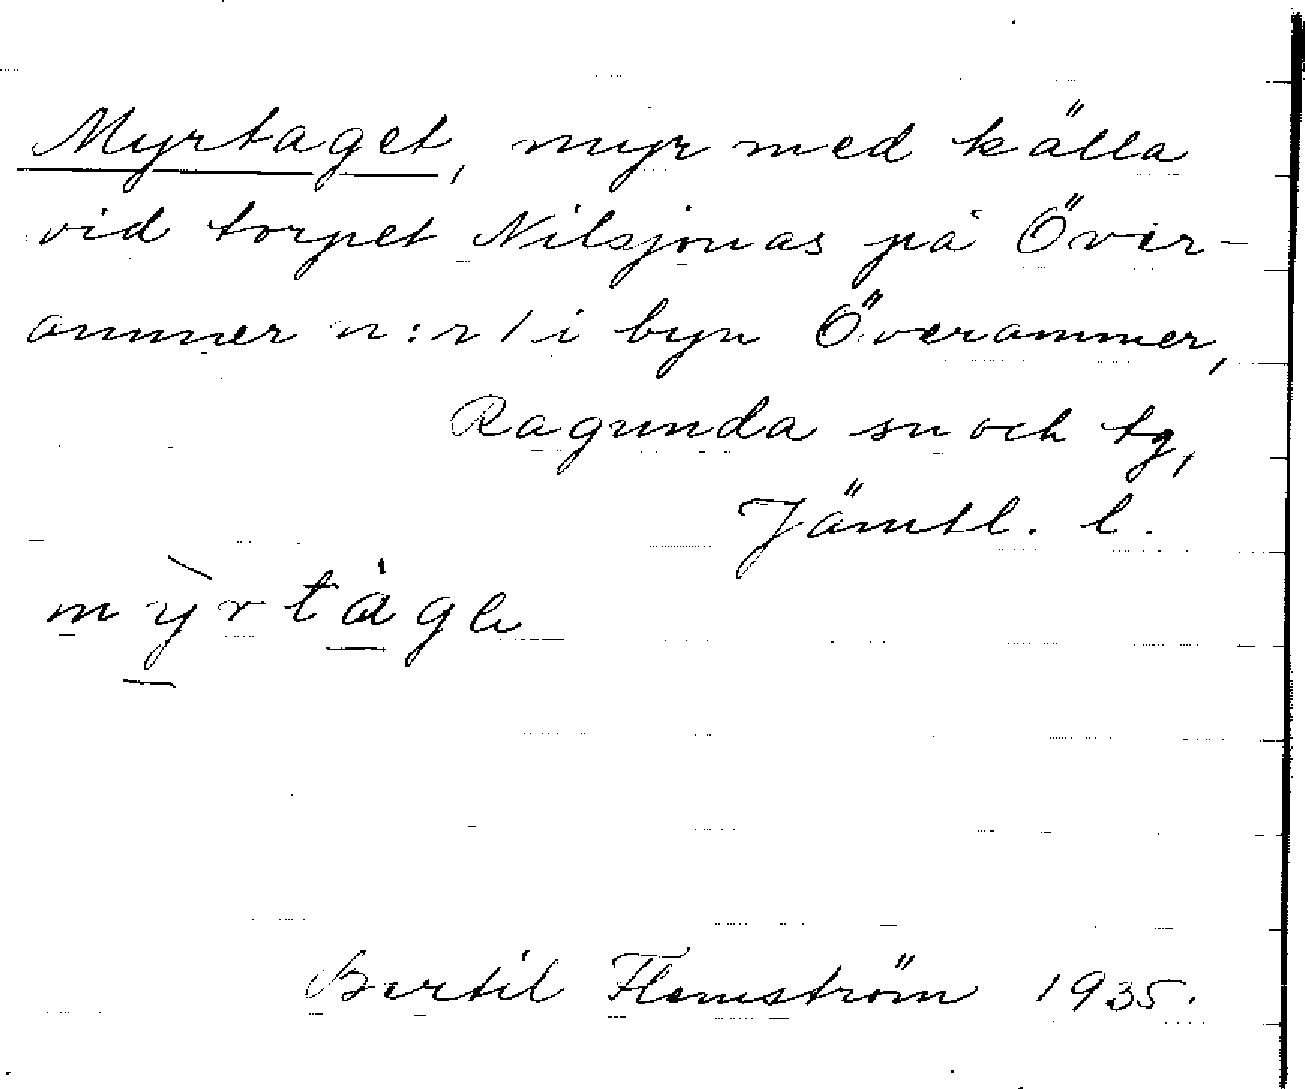 Myrtaget, myr med källa
vid torpet Nilsjonas på Över-
ammer n:r 1 i byn Överammer,
Ragunda sn och tg,
Jämtl. l.
Bertil Flemström 1935.